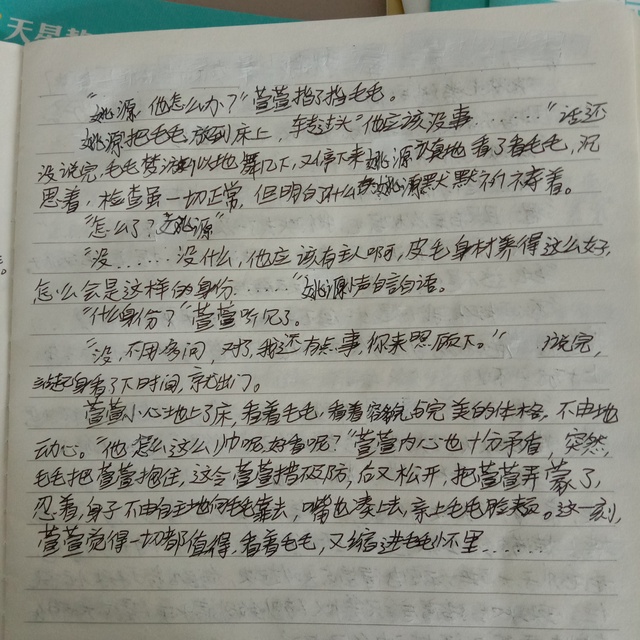 天星教
"姚源,他怎么办?"萱萱指了指毛毛。
姚源把毛毛放到床上,转过头"他应该没事……"话还
没说完,毛毛梦游似地舞几下,又停下来姚源地看了看毛毛,沉
思着,检查虽一切正常,但明白了什么姚源默默祈祷着。
"怎么了?姚源"
"没……没什么,他应该有主人啊,皮毛身材养得这么好,
怎么会是这样的身份……"姚源自言自语。
"什么身份?"萱萱听见了。
"没,不用多问,对了,我还有点事,你来照顾下。"说完,
站起身看了下时间,就出门。
萱萱小心地上了床,看着毛毛,看着容貌与完美的体格,不由地
动心。"他怎么这么帅呢,好看呢?"萱萱内心也十分矛盾,突然,
毛毛把萱萱抱住,这令萱萱措不及防,后又松开,把萱萱弄蒙了,
忍着,身子不由自主地向毛毛靠去,嘴也凑上去,亲上毛毛脸颊。这一刻,
萱萱觉得一切都值得,看着毛毛,又缩进毛毛怀里……